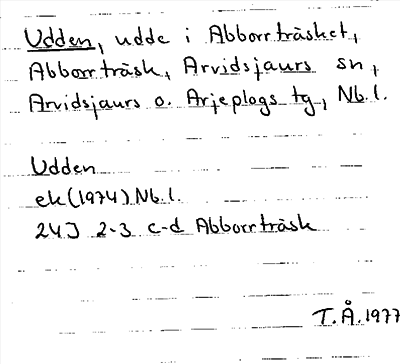 Udden, udde i Abborrträsket,
Abborrträsk, Arvidsjaurs sn,
Arvidsjaurs o. Arjeplogs tg, Nb.l.
Udden
ek(1974) Nb.l.
24J 2-3 c-d Abborrträsk
T.Å.1977